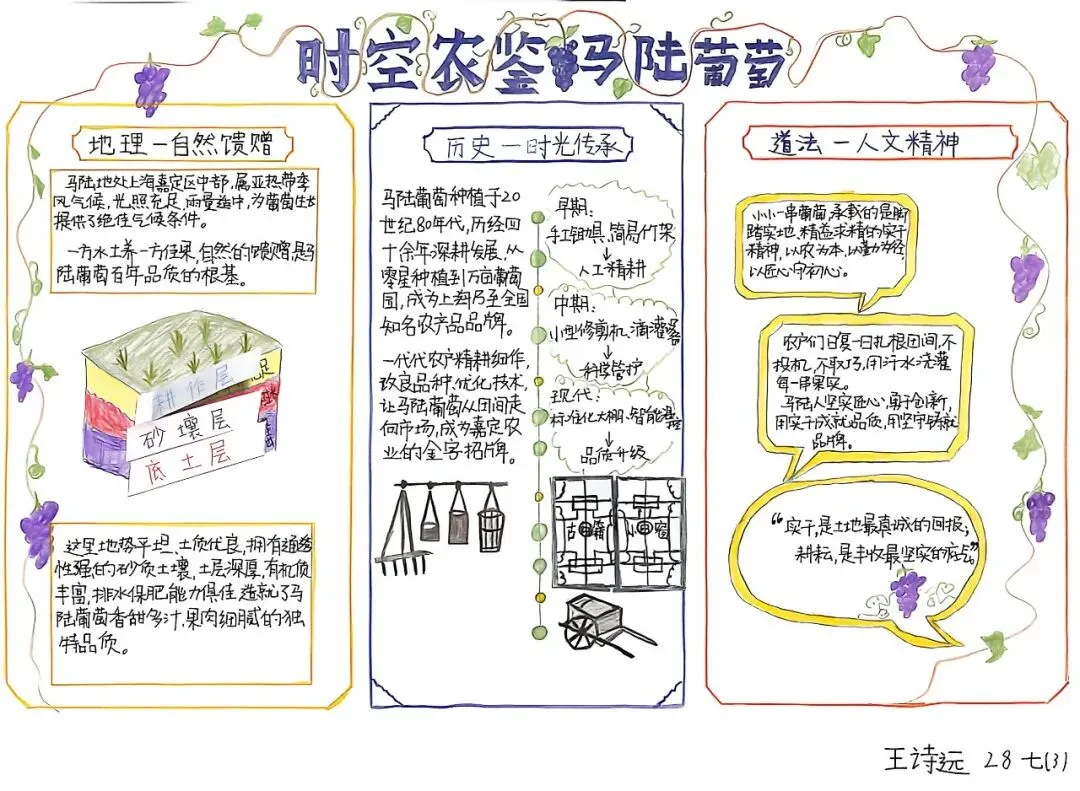 时空农鉴马陆葡萄
地理一自然馈赠
马陆地处上海嘉定区中部,属亚热带季
风气候,光照充足,雨量适中,为葡萄生长
提供了绝佳气候条件。
一方水土养一方佳果,自然的馈赠,是马
陆葡萄百年品质的根基。
耕作层
砂壤层
底土层
这里地势平坦、土质优良,拥有通透
性强的砂质土壤,土层深厚,有机质
丰富,排水保肥能力俱佳,造就了马
陆葡萄香甜多汁,果肉细腻的独
特品质。
历史一时光传承
马陆葡萄种植于20
世纪80年代,历经四
十余年深耕发展,从
零星种植到万亩葡萄
园,成为上海乃至全国
知名农产品品牌。
一代代农户精耕细作,
改良品种,优化技术,
让马陆葡萄从田间走
向市场,成为嘉定农
业的金字招牌。
早期:
手工钽具,简易竹架
↓
人工精耕
中期:
小型修剪机、滴灌器
↓
科学管护
现代:
标准化大棚、智能温
↓
品质升级
古籍
小窗
道法一人文精神
小小一串葡萄,承载的是脚
踏实地、精益求精的实干
精神,以农为本,以勤为径,
以匠心守初心。
农户们日复一日扎根田间,不
投机,不取巧,用汗水浇灌
每一串果实。
马陆人坚实匠心,勇于创新,
用实干成就品质,用坚守铸就
品牌。
“实干,是土地最真诚的回报;
耕耘,是丰收最坚实的底色。”
王诗远 28 七(3)